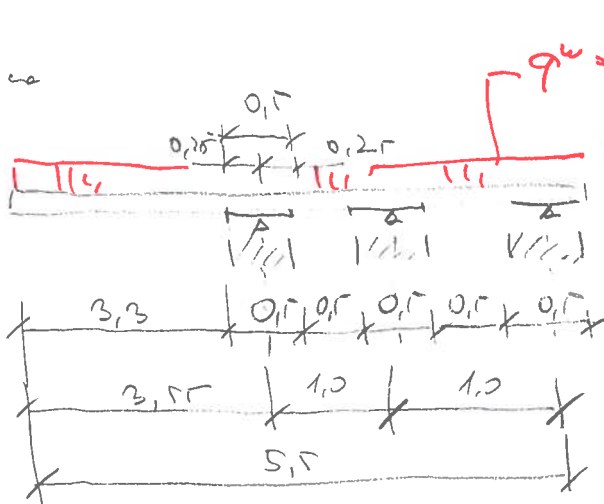 qʷ =
0,5
0,25 0,25
3,3 0,5 0,5 0,5 0,5 0,5
3,55 1,0 1,0
5,5